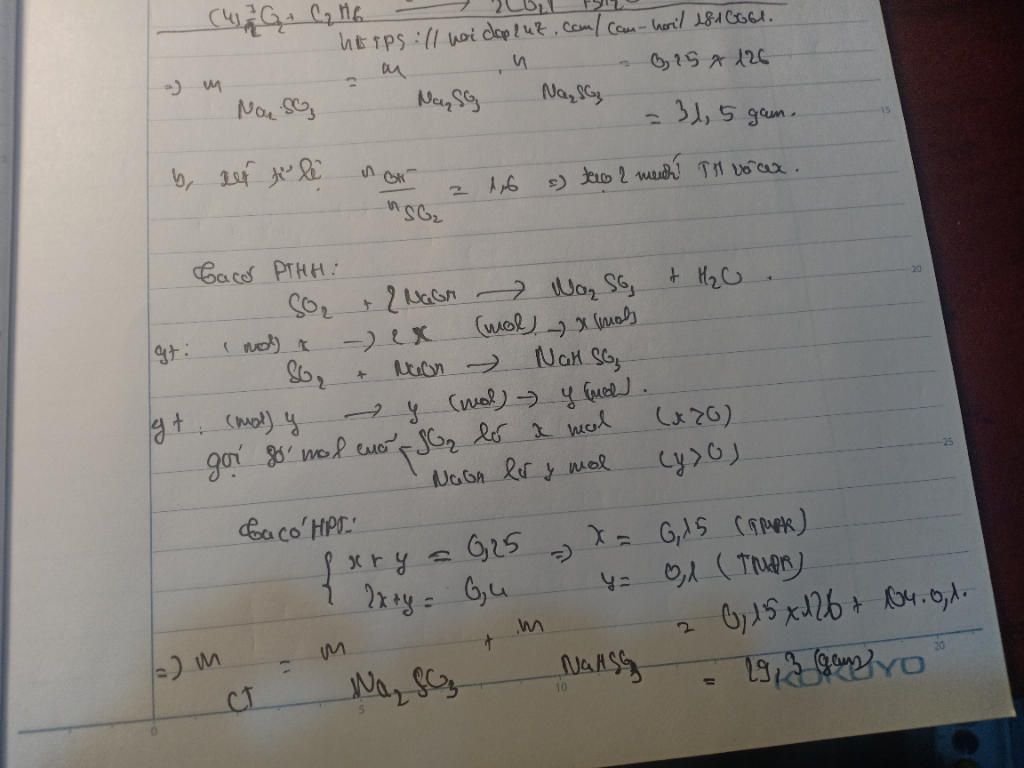 C2H6
https://hoidap247.com/cau-hoi/1810061.
=> m Na2SO3 = m Na2SO3 . n Na2SO3 = 0,25 x 126
= 31,5 gam.
b, xét tỉ lệ nOH-/nSO2 = 1,6 => tạo 2 muối TH và ax.
Ta có PTHH:
SO2 + 2NaOH → Na2SO3 + H2O.
gt: (mol) x → 2x (mol) → x (mol)
SO2 + NaOH → NaHSO3
gt: (mol) y → y (mol) → y (mol).
gọi số mol của SO2 là x mol (x>0)
NaOH là y mol (y>0)
Ta có HPT:
{ x + y = 0,25 => x = 0,15 (TMĐK)
2x+y = 0,4 y = 0,1 (TMĐK)
=> m CT = m Na2SO3 + m NaHSO3 = 0,15 x 126 + 104.0,1.
= 29,3 (gam)
KOKUYO
15
20
25
0
5
10
20